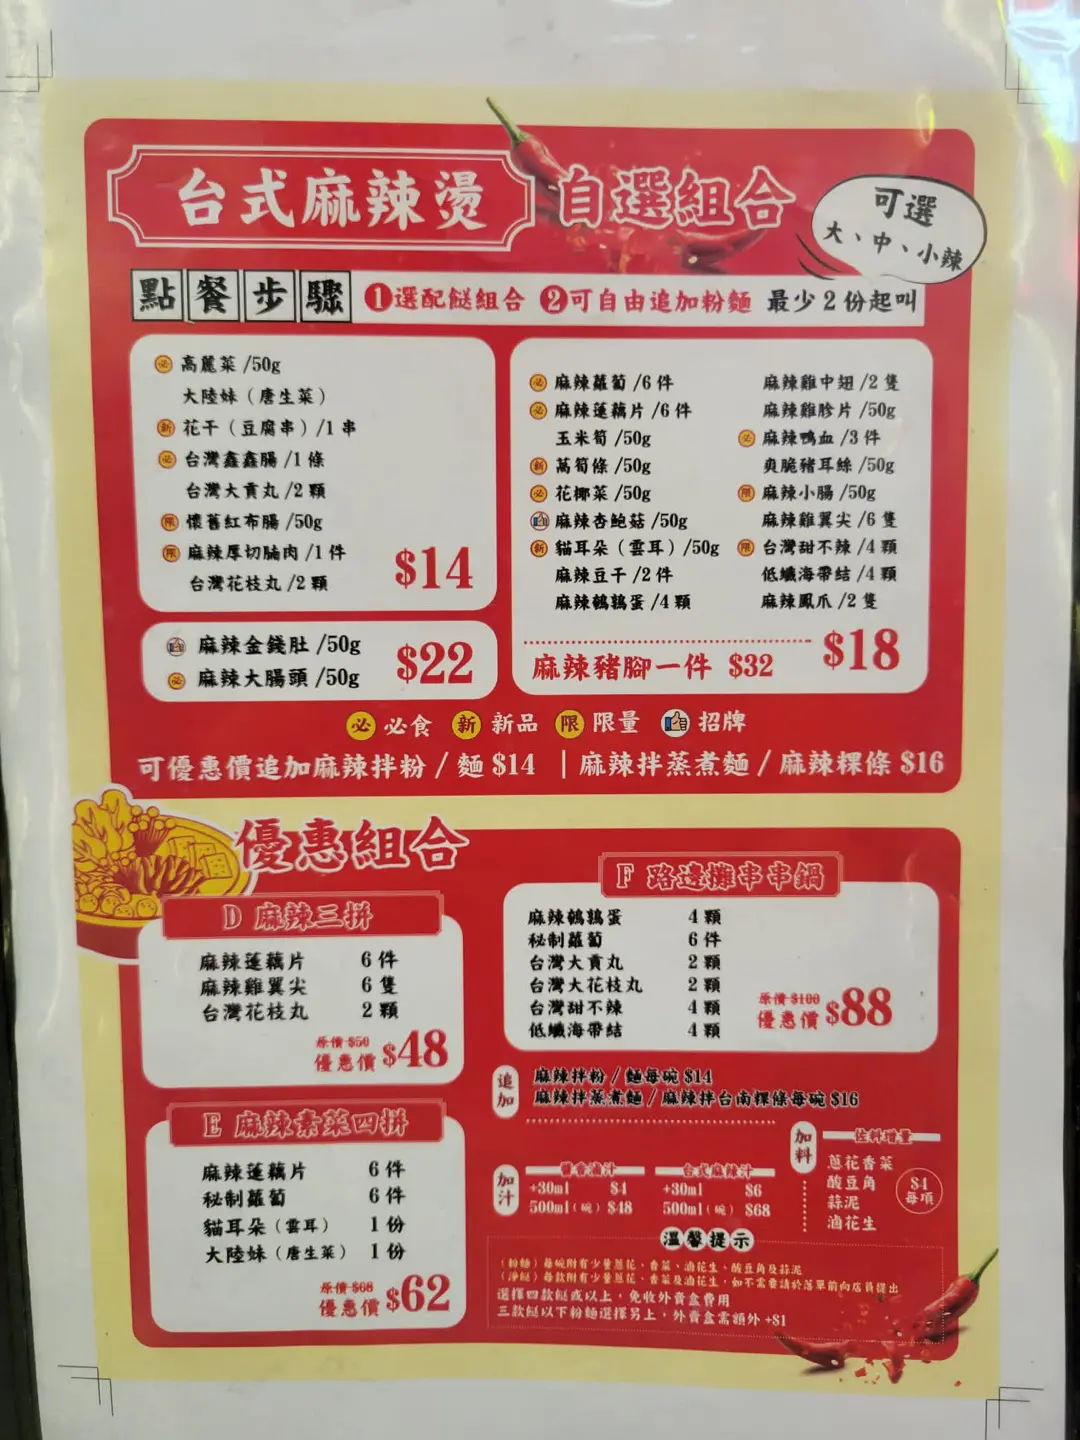 台式麻辣燙 自選組合
可選
大、中、小辣
點餐步驟 ❶選配餸組合 ❷可自由追加粉麵 最少2份起叫
必 高麗菜 /50g
大陸妹（唐生菜）
新 花干（豆腐串）/1 串
必 台灣鑫鑫腸 /1 條
台灣大貢丸 /2 顆
限 懷舊紅布腸 /50g
限 麻辣厚切腩肉 /1 件
台灣花枝丸 /2 顆
$14
麻辣金錢肚 /50g
必 麻辣大腸頭 /50g
$22
必 麻辣蘿蔔 /6 件
必 麻辣蓮藕片 /6 件
玉米筍 /50g
新 萵筍條 /50g
必 花椰菜 /50g
麻辣杏鮑菇 /50g
新 貓耳朵（雲耳）/50g
麻辣豆干 /2 件
麻辣鵪鶉蛋 /4 顆
麻辣雞中翅 /2 隻
麻辣雞胗片 /50g
必 麻辣鴨血 /3 件
爽脆豬耳絲 /50g
限 麻辣小腸 /50g
麻辣雞翼尖 /6 隻
限 台灣甜不辣 /4 顆
低纖海帶結 /4 顆
麻辣鳳爪 /2 隻
$18
麻辣豬腳一件 $32
必 必食 新 新品 限 限量 招牌
可優惠價追加麻辣拌粉 / 麵 $14 | 麻辣拌蒸煮麵 / 麻辣粿條 $16
優惠組合
D 麻辣三拼
麻辣蓮藕片 6 件
麻辣雞翼尖 6 隻
台灣花枝丸 2 顆
原價 $50
優惠價 $48
E 麻辣素菜四拼
麻辣蓮藕片 6 件
秘制蘿蔔 6 件
貓耳朵（雲耳） 1 份
大陸妹（唐生菜） 1 份
原價 $68
優惠價 $62
F 路邊攤串串鍋
麻辣鵪鶉蛋 4 顆
秘制蘿蔔 6 件
台灣大貢丸 2 顆
台灣大花枝丸 2 顆
台灣甜不辣 4 顆
低纖海帶結 4 顆
原價 $100
優惠價 $88
追加
麻辣拌粉 / 麵每碗 $14
麻辣拌蒸煮麵 / 麻辣拌台南粿條每碗 $16
加汁
醬香滷汁
+30ml $4
500ml（碗） $48
台式麻辣汁
+30ml $6
500ml（碗） $68
加料
佐料增量
蔥花香菜
酸豆角
蒜泥
滷花生
$4
每項
溫馨提示
（粉麵）每碗附有少量蔥花、香菜、滷花生、酸豆角及蒜泥
（淨餸）每款附有少量蔥花、香菜及滷花生，如不需要請於落單前向店員提出
選擇四款餸或以上，免收外賣盒費用
三款餸以下粉麵選擇另上，外賣盒需額外 +$1